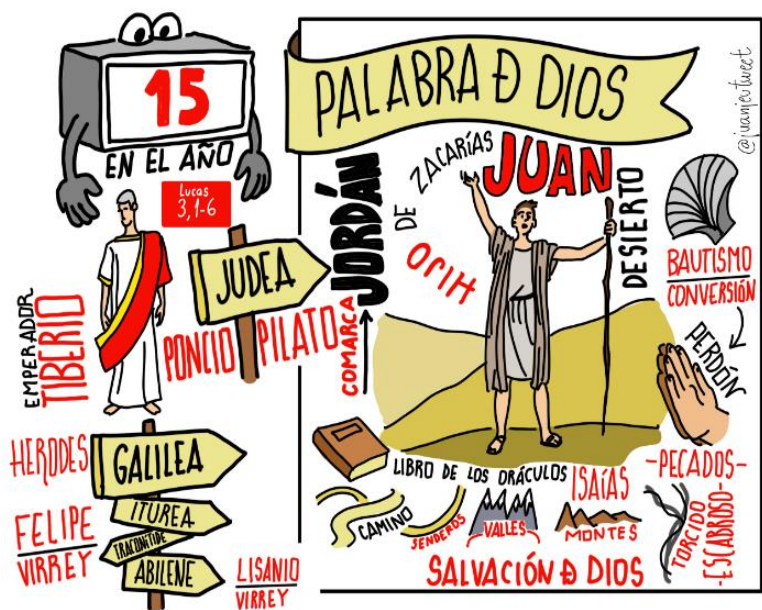 15
EN EL AÑO
Lucas
3,1-6
EMPERADOR
TIBERIO
JUDEA
PONCIO PILATO
HERODES
GALILEA
ITUREA
FELIPE
VIRREY
TRACONÍTIDE
ABILENE
LISANIO
VIRREY
PALABRA Đ DIOS
@juanjevtweet
COMARCA
JORDÁN
HIJO
DE
ZACARÍAS
JUAN
DESIERTO
BAUTISMO
CONVERSIÓN
PERDÓN
-PECADOS-
LIBRO DE LOS ORÁCULOS
ISAÍAS
CAMINO
SENDEROS
VALLES
MONTES
TORCIDO
-ESCABROSO-
SALVACIÓN Đ DIOS